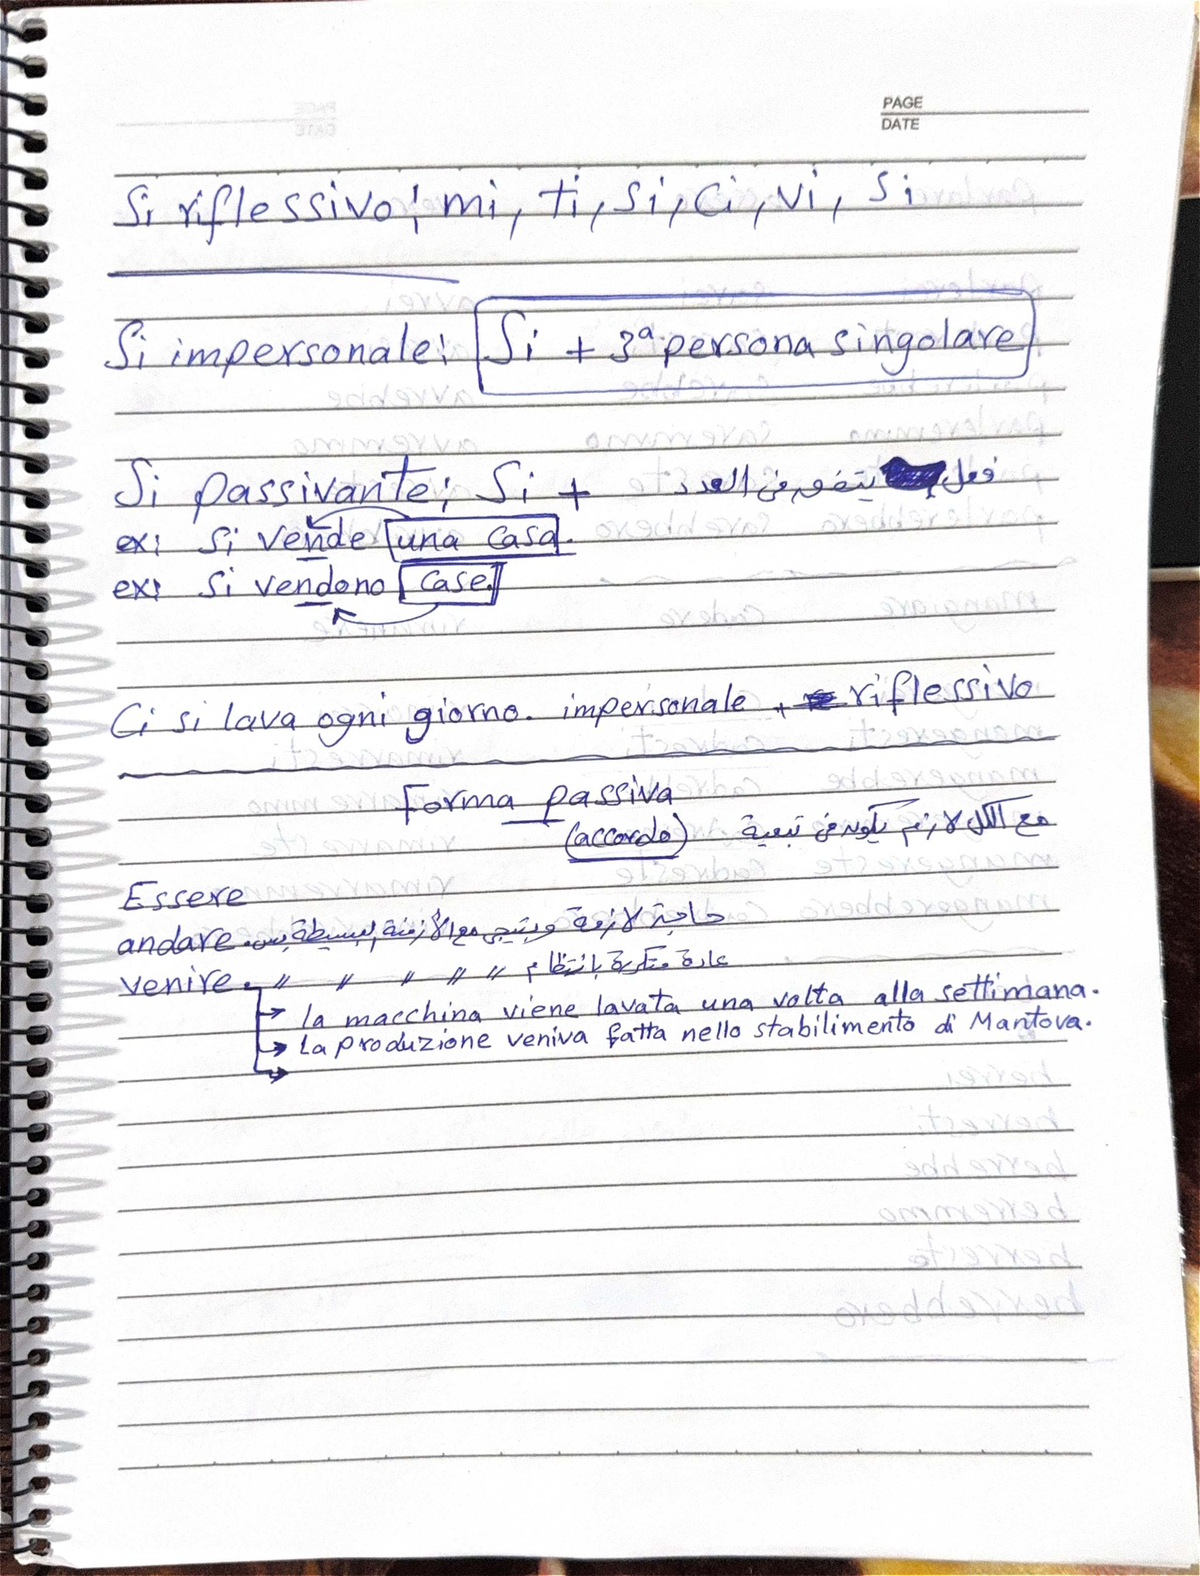 PAGE
DATE
Si riflessivo: mi, ti, si, ci, vi, si
Si impersonale: Si + 3ª persona singolare
Si passivante: Si + فعل يتفق في العدد
ex: Si vende una casa.
ex: Si vendono case.
Ci si lava ogni giorno. impersonale + riflessivo
Forma passiva
(accordo) مع الكل لازم يكون في تبعية
Essere
andare. حاجة لازمة وبتيجي مع الأزمنة البسيطة بس.
venire. 〃 〃 〃 〃 〃 عادة متكررة بانتظام
→ la macchina viene lavata una volta alla settimana.
→ La produzione veniva fatta nello stabilimento di Mantova.
→